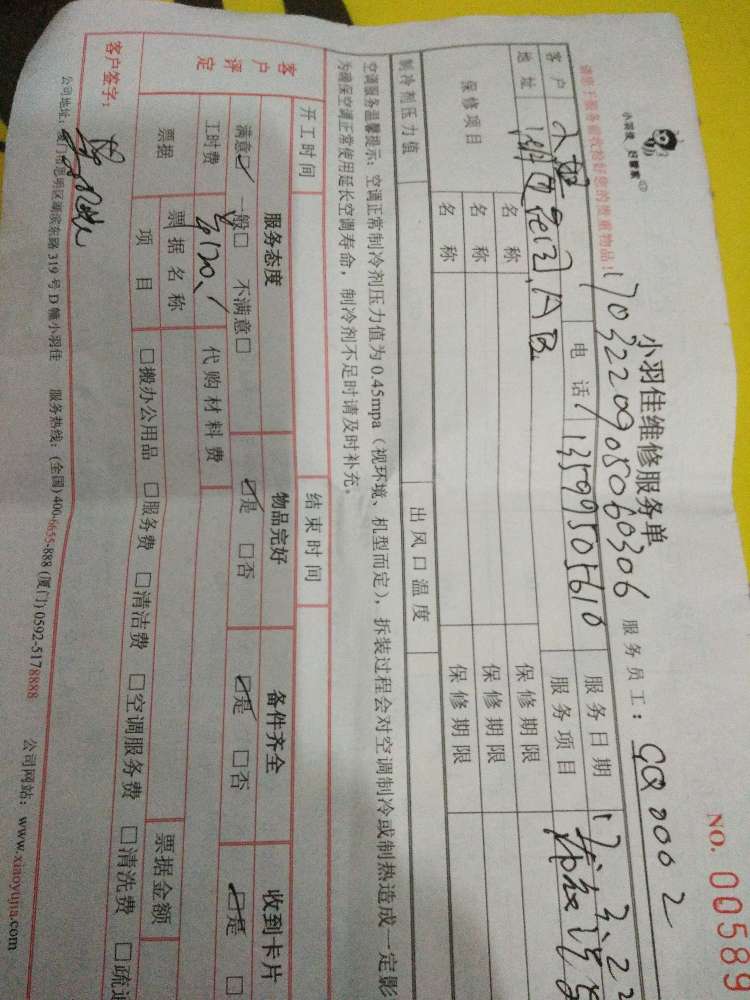 小羽佳 好管家
小羽佳维修服务单
NO. 00589
请您于服务前收拾好您的贵重物品！
1703220908060306
服务员工：GQ0002
客户
电话 13599505610
服务日期 17.3.22
地址
服务项目
保修项目
名称 保修期限
名称 保修期限
名称 保修期限
制冷剂压力值 出风口温度
空调服务温馨提示：空调正常制冷剂压力值为0.45mpa（视环境、机型而定），拆装过程会对空调制冷或制热造成一定影
为确保空调正常使用延长空调寿命，制冷剂不足时请及时补充。
开工时间 结束时间
客户评定
服务态度 物品完好 备件齐全 收到卡片
满意☑ 一般□ 不满意□ ☑是 □否 ☑是 □否 ☑是 □
工时费 代购材料费
票据
票据名称 票据金额
项目 □搬办公用品 □服务费 □清洁费 □空调服务费 □清洗费 □疏通
客户签字：
公司地址：厦门市思明区湖滨东路319号D幢小羽佳 服务热线：(全国)400-6655-888 (厦门)0592-5178888 公司网站：www.xiaoyujia.com